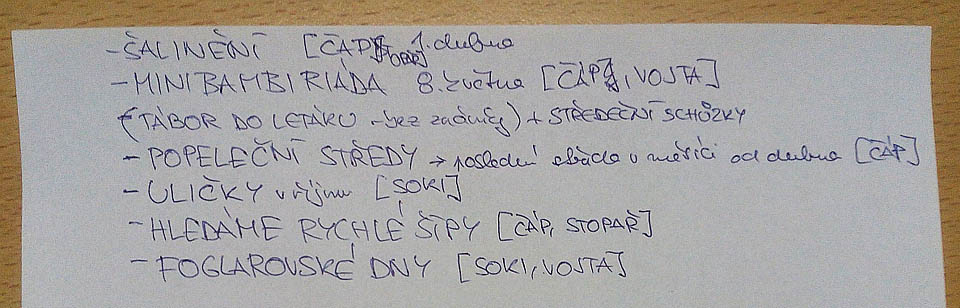 - ŠALINĚNÍ [ČÁP, STOPAŘ] 1. dubna
- MINIBAMBIRIÁDA 8. května [ČÁP, VOJTA]
(TÁBOR DO LETÁKU - bez záruky) + STŘEDEČNÍ SCHŮZKY
- POPELEČNÍ STŘEDY → poslední středa v měsíci od dubna [ČÁP]
- ULIČKY v říjnu [SOKI]
- HLEDÁME RYCHLÉ ŠÍPY [ČÁP, STOPAŘ]
- FOGLAROVSKÉ DNY [SOKI, VOJTA]